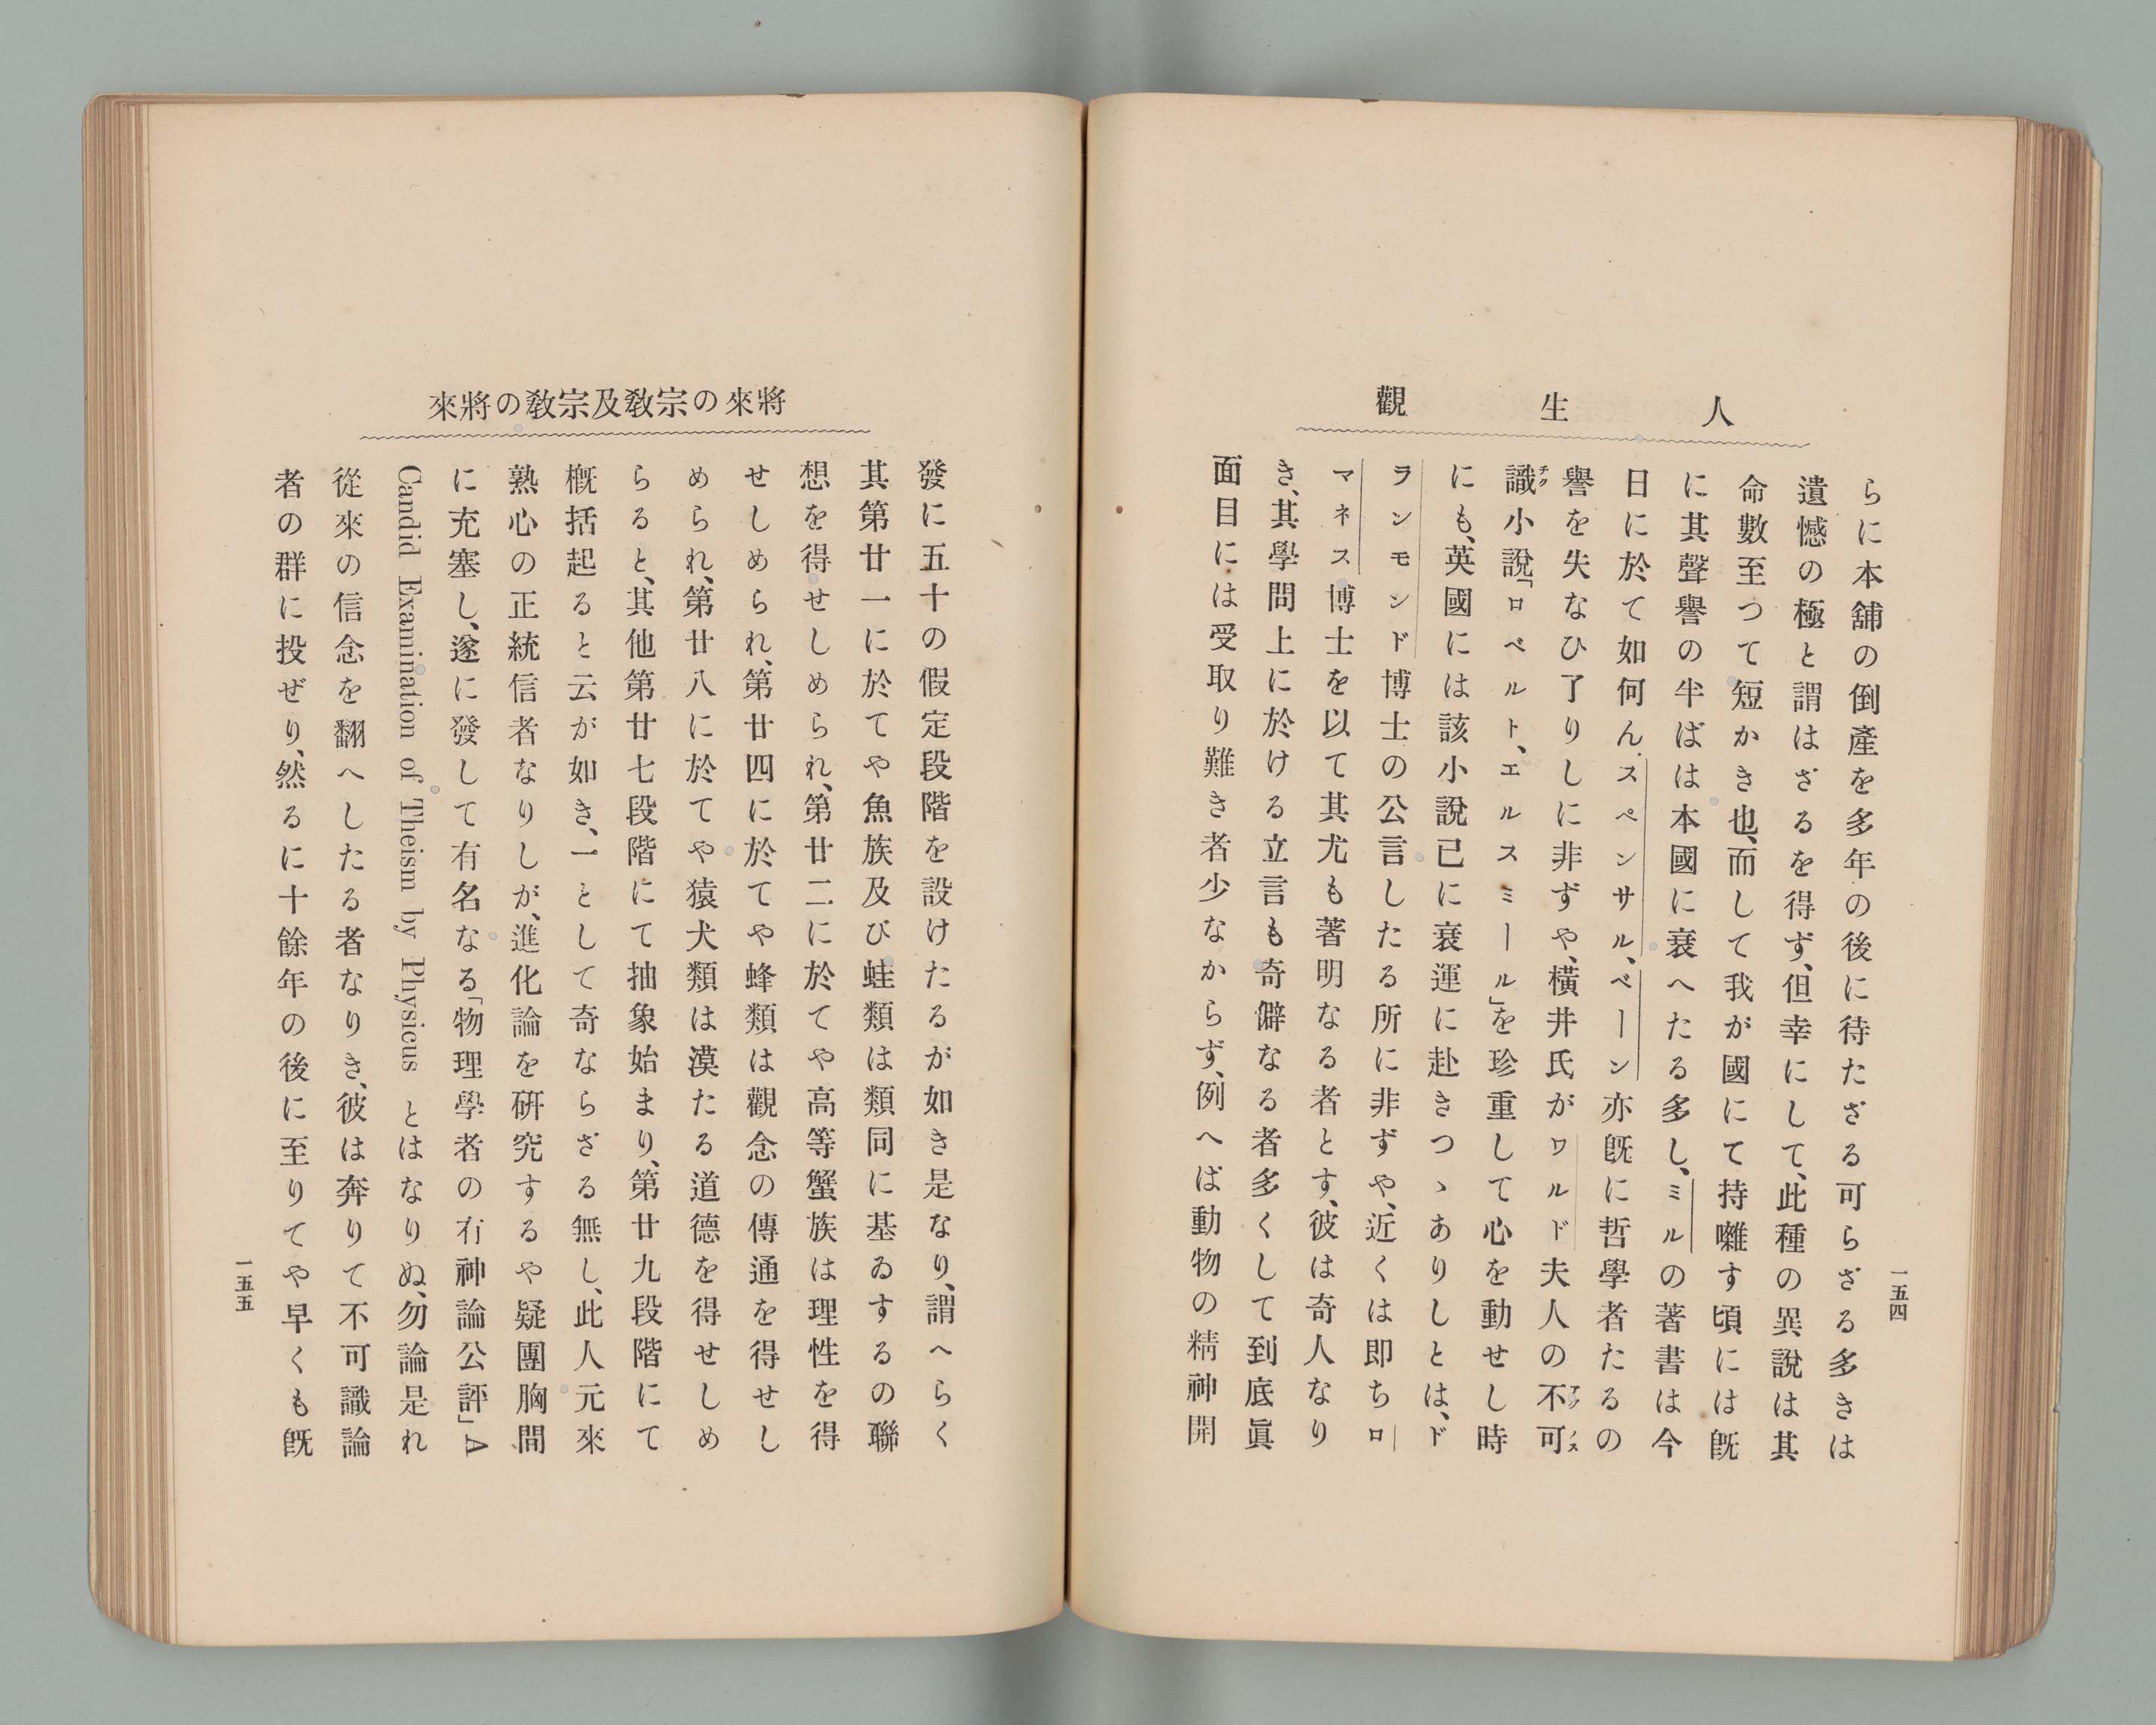 人生觀
一五四
らに本舖の倒產を多年の後に待たざる可らざる多きは
遺憾の極と謂はざるを得ず、但幸にして、此種の異說は其
命數至つて短かき也、而して我が國にて持囃す頃には旣
に其聲譽の半ばは本國に衰へたる多し、ミルの著書は今
日に於て如何ん、スペンサル、ベーン亦旣に哲學者たるの
譽を失なひ了りしに非ずや、橫井氏がワルド夫人の不可
識小說「ロベルト、エルスミール」を珍重して心を動せし時
にも、英國には該小說已に衰運に赴きつゝありしとは、ド
ランモンド博士の公言したる所に非ずや、近くは即ちロ
マネス博士を以て其尤も著明なる者とす、彼は奇人なり
き、其學問上に於ける立言も奇僻なる者多くして到底眞
面目には受取り難き者少なからず、例へば動物の精神開
將來の宗敎及宗敎の將來
發に五十の假定段階を設けたるが如き是なり、謂へらく
其第廿一に於てや魚族及び蛙類は類同に基ゐするの聯
想を得せしめられ、第廿二に於てや高等蟹族は理性を得
せしめられ、第廿四に於てや蜂類は觀念の傳通を得せし
められ、第廿八に於てや猿犬類は漠たる道德を得せしめ
らると、其他第廿七段階にて抽象始まり、第廿九段階にて
概括起ると云が如き、一として奇ならざる無し、此人元來
熟心の正統信者なりしが、進化論を硏究するや疑團胸間
に充塞し、遂に發して有名なる「物理學者の有神論公評」A
Candid Examination of Theism by Physicus とはなりぬ、勿論是れ
從來の信念を翻へしたる者なりき、彼は奔りて不可識論
者の群に投ぜり、然るに十餘年の後に至りてや早くも旣
一五五